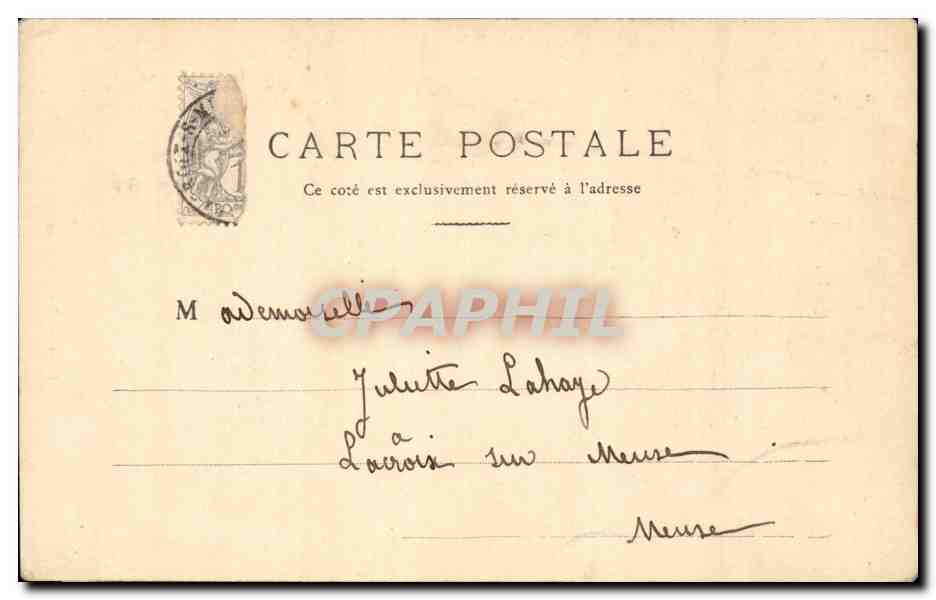 CARTE POSTALE
Ce coté est exclusivement réservé à l'adresse
Mademoiselle
CPAPHIL
Juliette Lahaye
à
Lacroix sur Meuse
Meuse